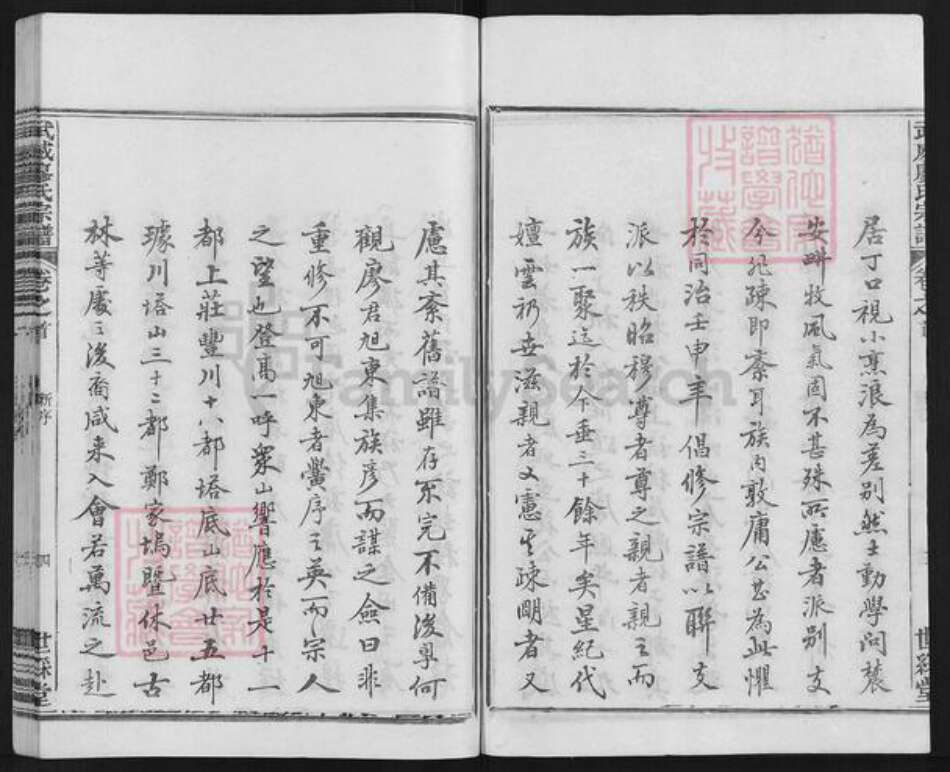 居丁口視小烹浪為差别然士勤學問農
安畊牧風氣固不甚殊所慮者派别支
今疏即紊耳族内敦庸公甚為此懼
於同治壬申年倡修宗譜以聯支
派以秩昭穆尊者尊之親者親之而
族一聚迄於今垂三十餘年矣星紀代
嬗雲礽世滋親者又慮其疎明者又
慮其紊舊譜雖存不完不備後學何
觀廖君旭東集族彦而謀之僉曰非
重修不可旭東者黌序之英而宗人
之望也登高一呼衆山響應於是十一
都上莊豐川十八都塔底山底廿五都
璩川塔山三十二都鄭家塢暨休邑古
林等處之後裔咸来入會若萬流之赴
武威廖氏宗譜
卷之首
新序
四
世綵堂
武威廖氏宗譜
卷之首
世綵堂
FamilySearch